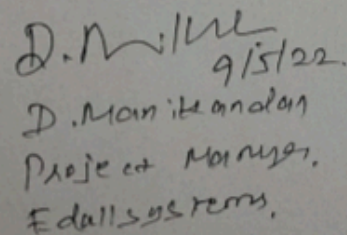 9/5/22.
D. Manikandan
Project Manager.
Edallsystems.